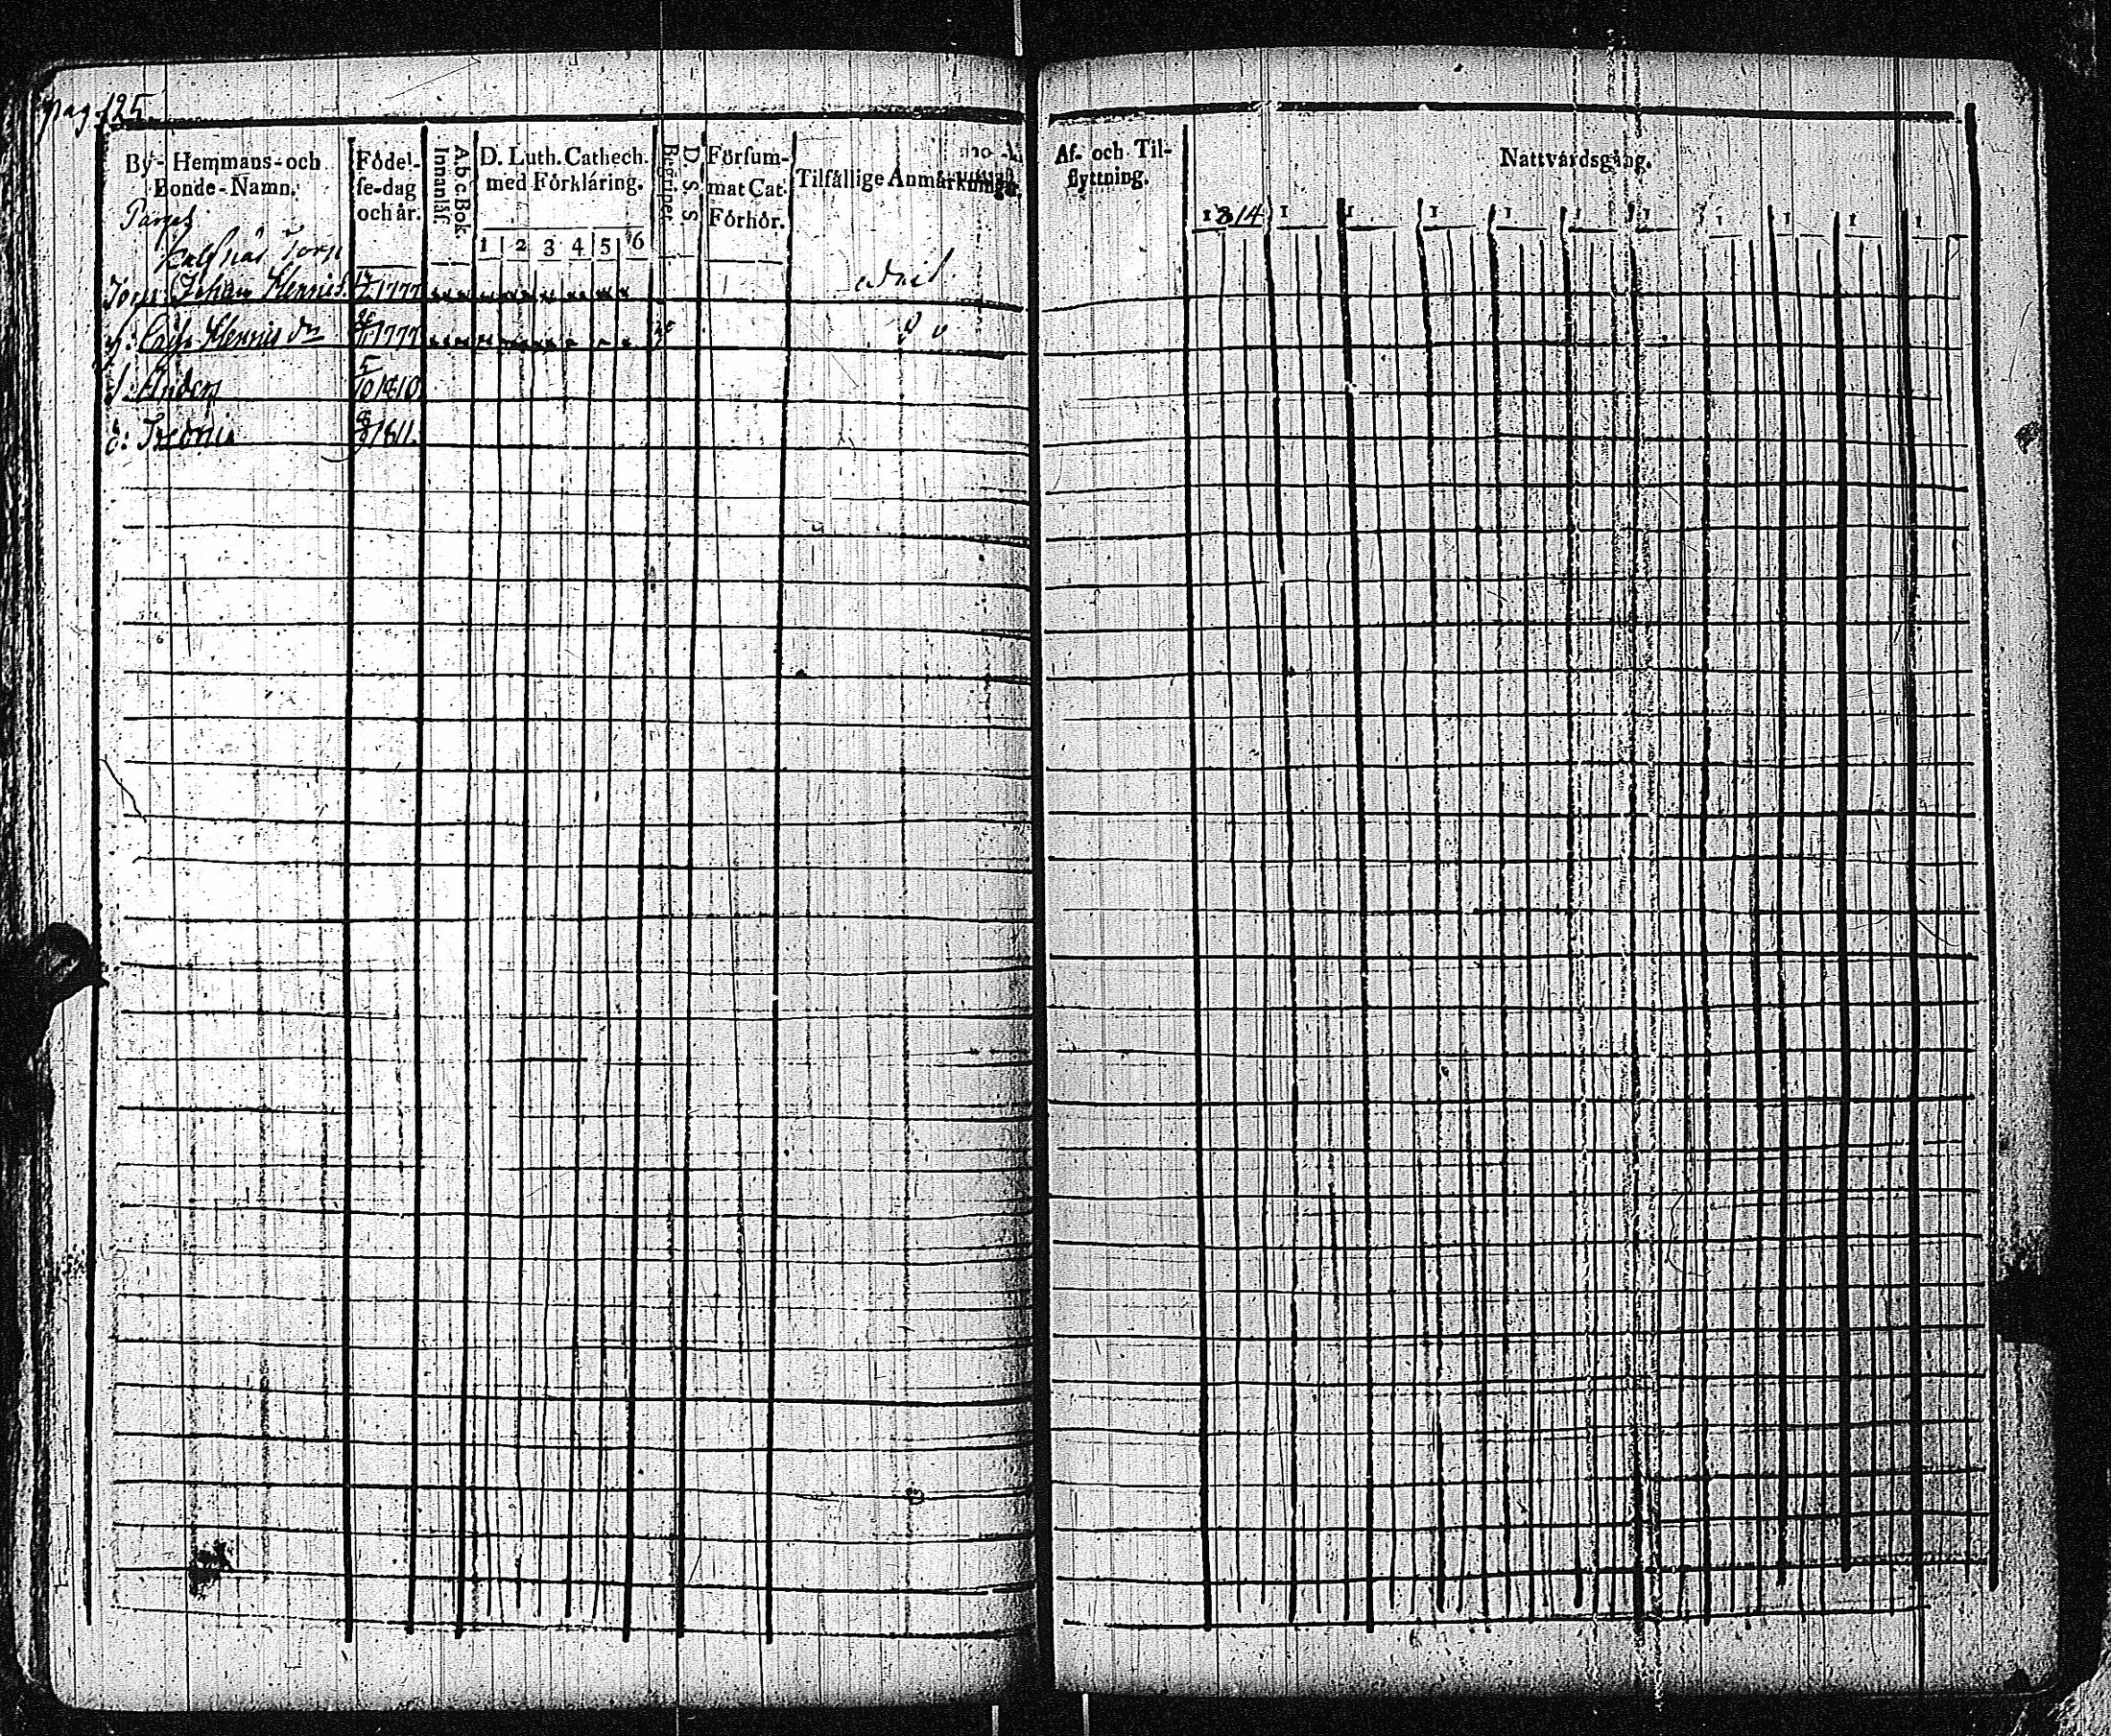 pag. 125
By- Hemmans- och Bonde-Namn.
Födel-se-dag och år.
A b c Bok. Innanläs.
D. Luth. Cathech. med Förkláring.
1 2 3 4 5 6
Begripet.
D. S. S.
Försum-mat Cat. Förhör.
Tilfällige Anmärkningar.
Torp
Johan Henrics. 1777
h: Henrics dr 1777
S: Anders 5/10 1810
d: 1811
Af- och Til-flyttning.
Nattvardsgång.
1814 1 1 1 1 1 1 1 1 1 1